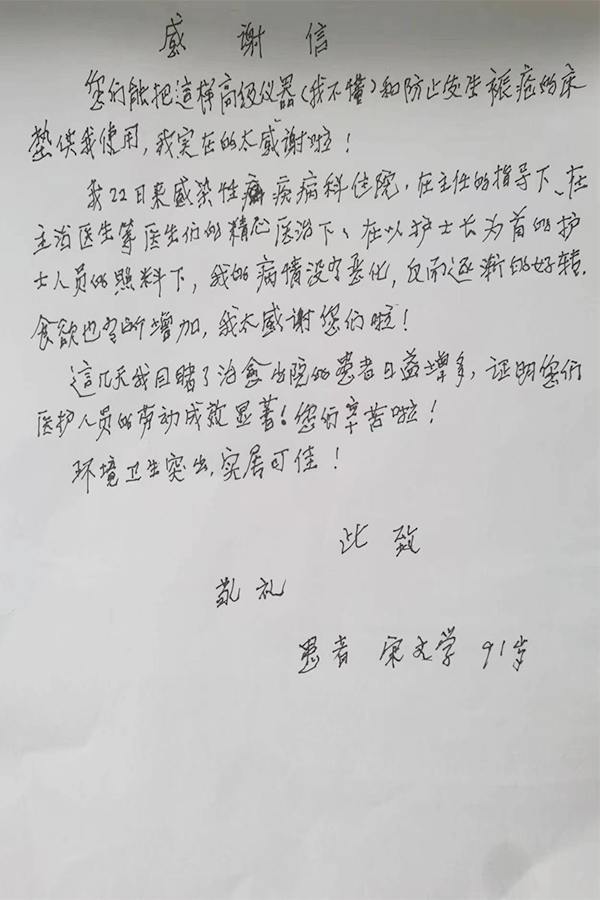 感谢信
您们能把這样高级仪器(我不懂)和防止发生褥疮的床
垫供我使用,我实在的太感谢啦!
我22日来感染性疾病科住院,在主任的指导下、在
主治医生等医生们的精心医治下、在以护士长为首的护
士人员的照料下,我的病情没有恶化,反而逐渐的好转.
食欲也有所增加,我太感谢您们啦!
這几天我目睹了治愈出院的患者日益增多,证明您们
医护人员的劳动成效显著!您们辛苦啦!
环境卫生突出,实居可佳!
此致
敬礼
患者 宋文学 91岁